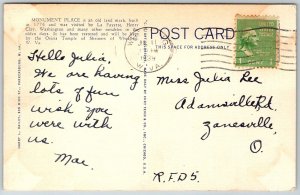 MONUMENT PLACE is an old land mark, built
in 1798 and was visited by La Fayette, Henry
Clay, Washington and many other notables in the
olden days. It has been restored and will be used
by the Osiris Temple of Shriners of Wheeling,
W. Va.
POST CARD
THIS SPACE FOR ADDRESS ONLY
W. VA.
Hello Julia,
We are having
lots of fun
wish you
were with
us.
Mae.
Miss Julia Lee
Adamsville Rd.
Zanesville
O.
R.F.D 5